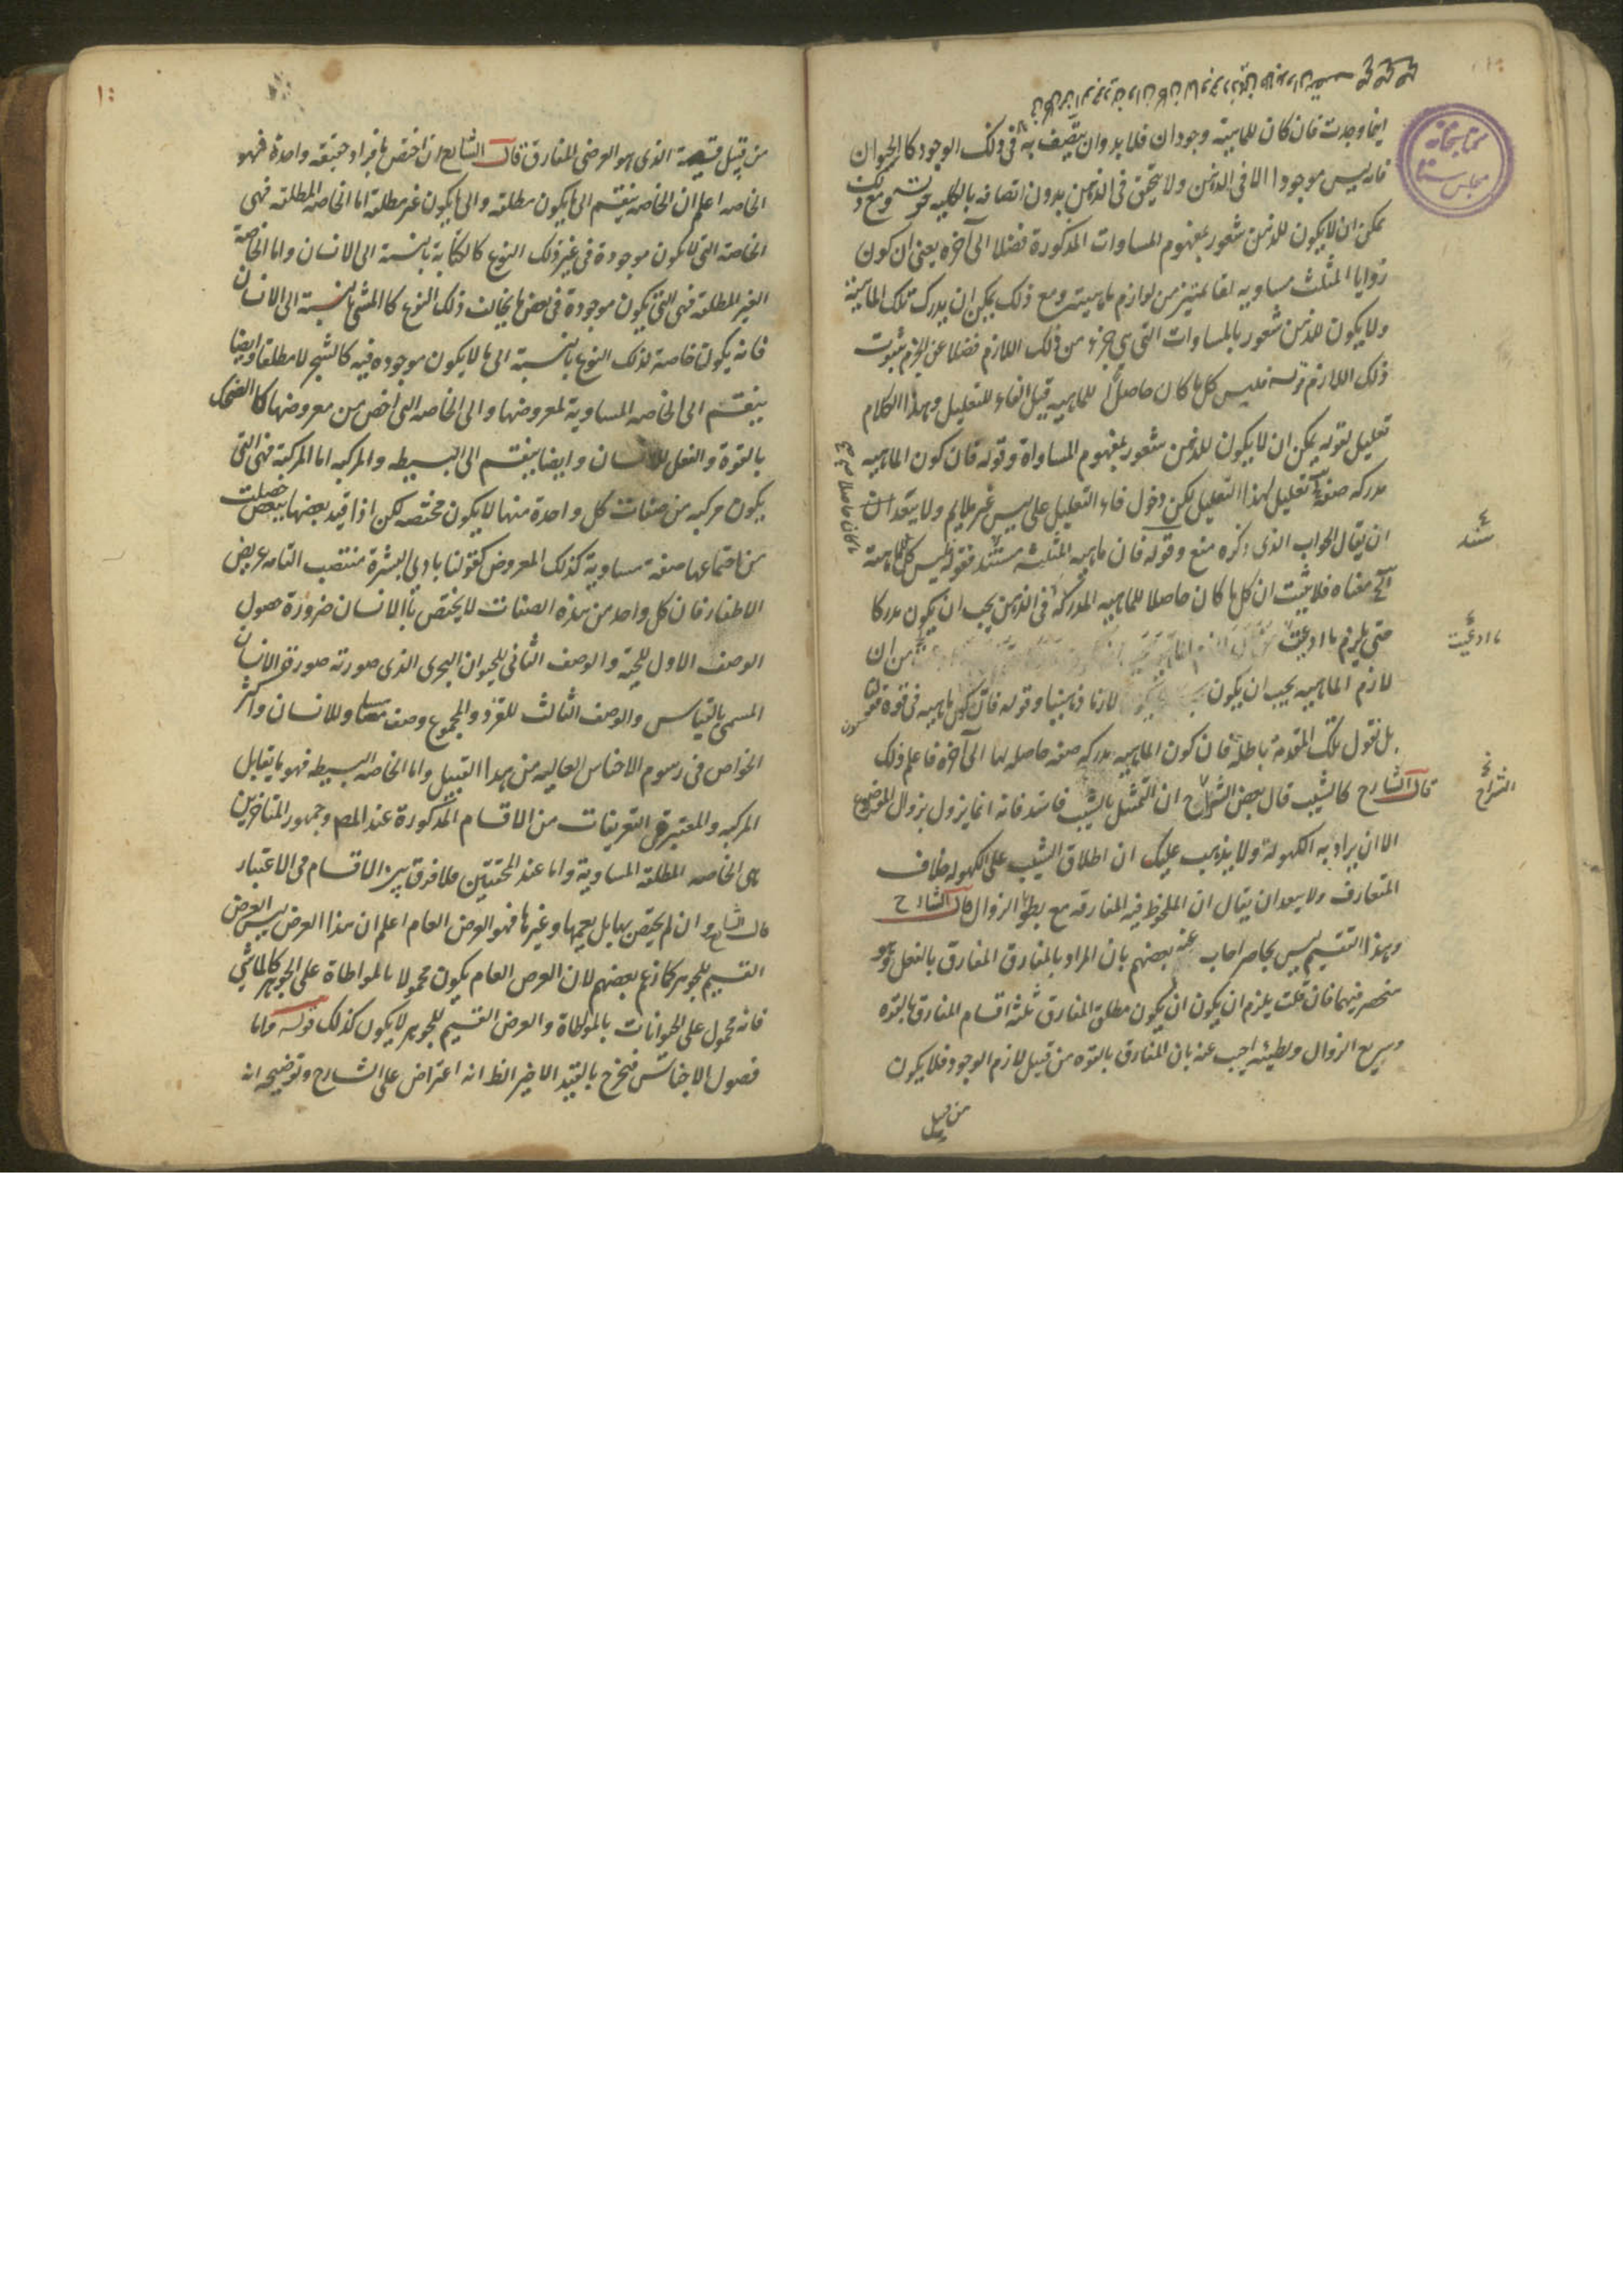 اينما وجدت فان كان للماهية وجودان فلا بد وان يتصف به فى ذلك الوجود كالحيوان
فانه ليس موجودا الا فى الذهن ولا يتحقق فى الذهن بدون اتصافه بالكليه ومع ذلك
يمكن ان لا يكون للذهن شعور بمفهوم المساوات المذكورة فضلا الى آخره يعنى ان كون
زوايا المثلث مساويه لقائمتين من لوازم ماهيته ومع ذلك يمكن ان يدرك تلك الماهية
ولا يكون للذهن شعور بالمساوات التى هى جزء من ذلك اللازم فضلا عن الجزم بثبوت
ذلك اللازم قوله فليس كل ما كان حاصلا للماهيه قيل الفاء للتعليل وهذا الكلام
تعليل لقوله يمكن ان لا يكون للذهن شعور بمفهوم المساواة وقوله فان كون الماهيه
مدركه صفة تعليل لهذا التعليل لكن دخول فاء التعليل على ليس غير ملايم ولا يبعد
ان يقال الجواب الذى ذكره منع وقوله فان ماهيه المثلث مستند فقوله فليس كل ما
معناه فلا يثبت ان كل ما كان حاصلا للماهيه المدركة فى الذهن يجب ان يكون مدركا
حتى يلزم ما ادعيت من ان
لازم الماهيه يجب ان يكون لازما ذهنيا وقوله فان كون ماهيه فى قوة قولنا
بل نقول تلك المقدمة باطلة فان كون الماهيه مدركه صفه حاصله لها الى آخره فاعلم ذلك
قال الشارح كالشيب قال بعض الشراح ان التمثيل بالشيب فاسد فانه انما يزول بزوال الموضوع
الا ان يراد به الكهولة ولا يذهب عليك ان اطلاق الشيب على الكهوله خلاف
المتعارف ولا يبعد ان يقال ان الملحوظ فيه المفارقه مع بطؤ الزوال قال الشارح
وهذا التقسيم ليس بحاصر اجاب عنه بعضهم بان المراد بالمفارق المفارق بالفعل وهو
منحصر فيهما فان قلت يلزم ان يكون ان يكون مطلق المفارق ثلثة اقسام المفارق بالقوه
وسريع الزوال وبطيئه اجيب عنه بان المفارق بالقوه من قبيل لازم الوجود فلا يكون
من قبيل
سند
ما ادعيت
الشراح
كتابخانه
مجلس سنا
من قبيل قسيمه الذى هو العرضى المفارق قال الشارح ان اختص بافراد حقيقه واحدة فهو
الخاصه اعلم ان الخاصه ينقسم الى ما يكون مطلقه والى ما يكون غير مطلقة اما الخاصه المطلقه فهى
الخاصة التى لا يكون موجودة فى غير ذلك النوع كالكتابة بالنسبة الى الانسان واما الخاصة
الغير المطلقه فهى التى يكون موجودة فى بعض ما يخالف ذلك النوع كالمشى بالنسبة الى الانسان
فانه يكون خاصة لذلك النوع بالنسبة الى ما لا يكون موجوده فيه كالشجر لا مطلقا وايضا
ينقسم الى الخاصه المساوية لمعروضها والى الخاصه التى اخص من معروضها كالضحك
بالقوة والفعل للانسان وايضا ينقسم الى البسيطه والمركبه اما المركبة فهى التى
يكون مركبه من صفات كل واحدة منها لا يكون مختصه لكن اذا قيد بعضها ببعض حصلت
من اجتماعها صفة مساوية كذلك المعروض كقولنا بادى البشرة منتصب القامه عريض
الاظفار فان كل واحد من هذه الصفات لا يختص بالانسان ضرورة حصول
الوصف الاول للحية والوصف الثانى للحيوان البحرى الذى صورته صورة الانسان
المسمى بالنسناس والوصف الثالث للقرد والمجموع وصف مساو للانسان واكثر
الخواص فى رسوم الاجناس العاليه من هذا القبيل واما الخاصه البسيطه فهو ما يقابل
المركبه والمعتبر فى التعريفات من الاقسام المذكورة عند المصـ وجمهور المتاخرين
هى الخاصه المطلقه المساوية واما عند المحققين فلا فرق بين الاقسام فى الاعتبار
قال الشارح وان لم يختص بها بل يعمها وغيرها فهو العرض العام اعلم ان هذا العرض ليس العرض
القسيم للجوهر كما زعم بعضهم لان العرض العام يكون محمولا بالمواطاة على الجوهر كالماشى
فانه محمول على الحيوانات بالمواطاة والعرض القسيم للجوهر لا يكون كذلك قوله واما
فصول الاجناس فتخرج بالقيد الاخير الظ انه اعتراض على الشارح وتوضيحه انه